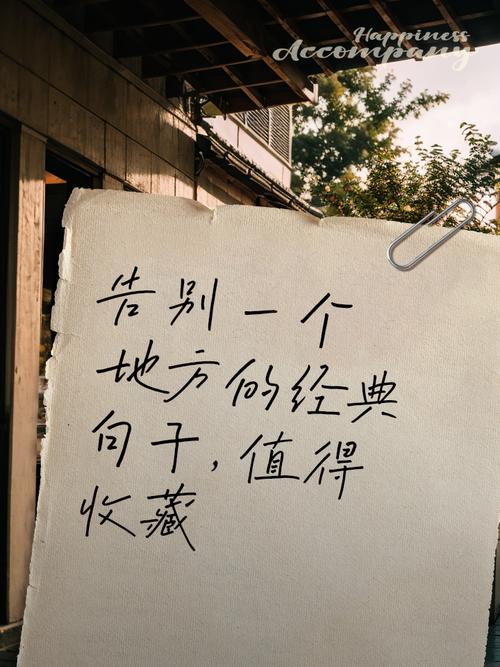 Happiness
Accompany
告别一个
地方的经典
句子,值得
收藏